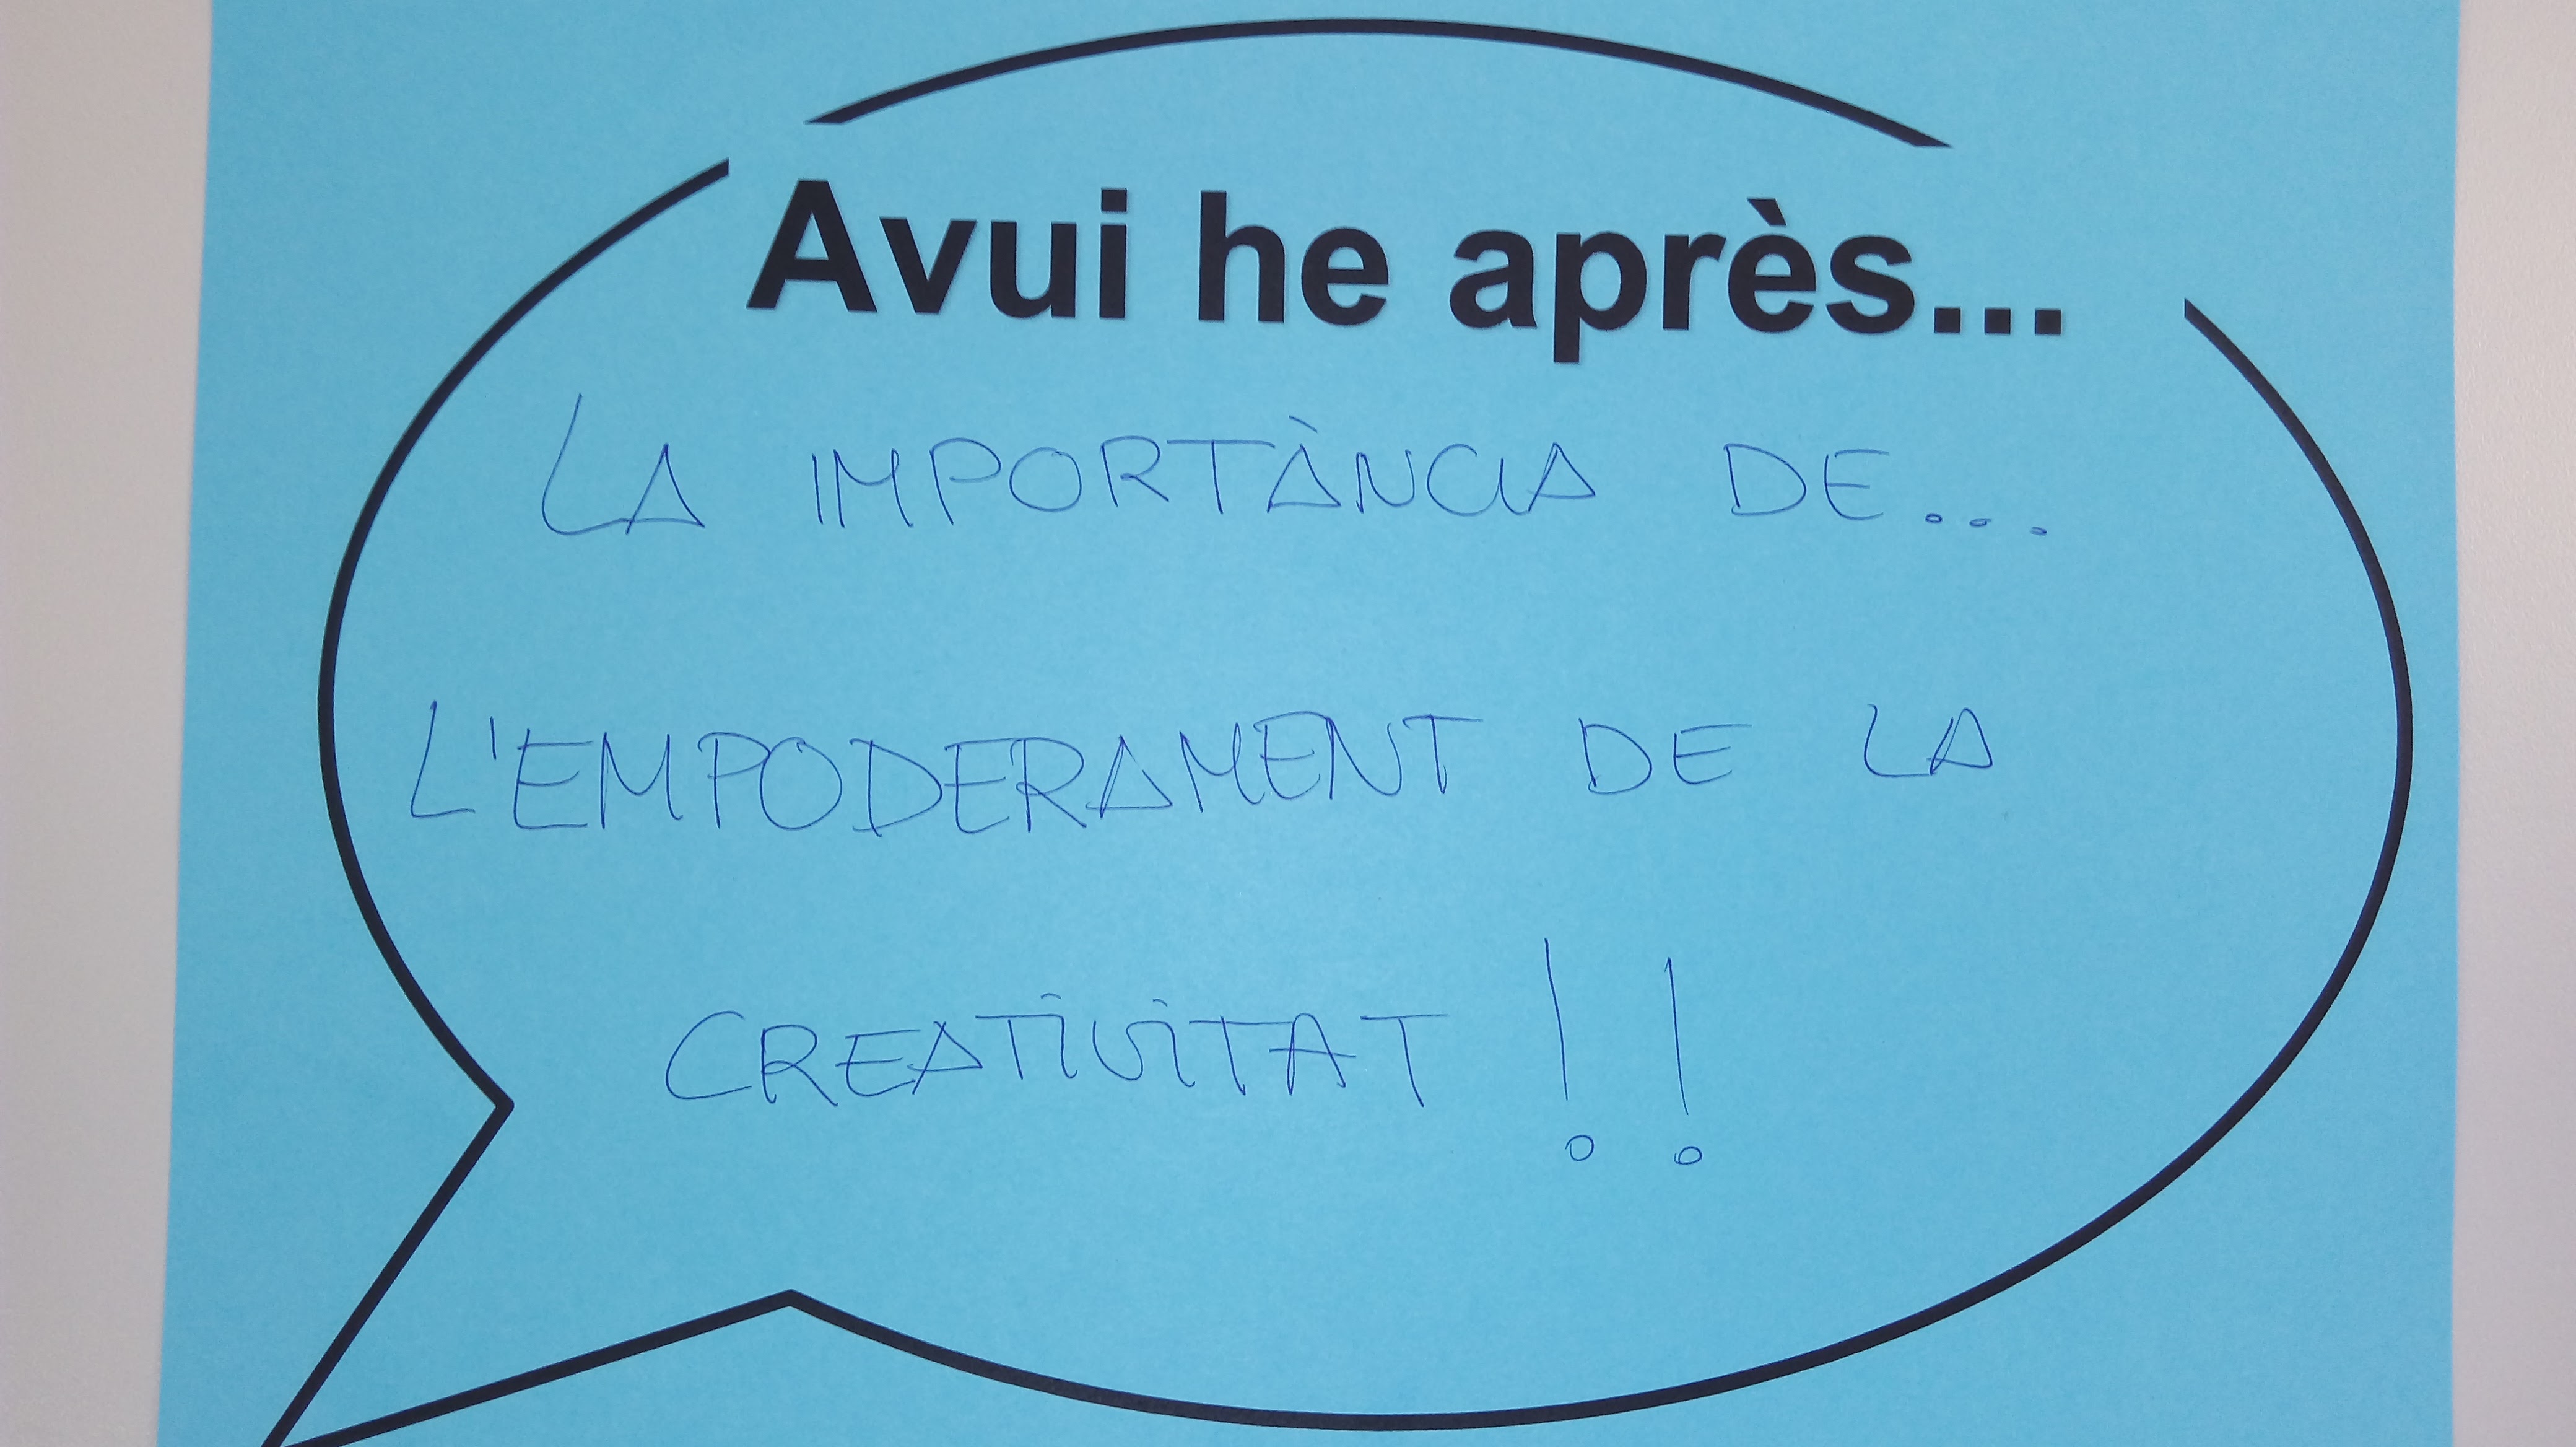 Avui he après...
LA IMPORTÀNCIA DE...
L'EMPODERAMENT DE LA
CREATIVITAT !!